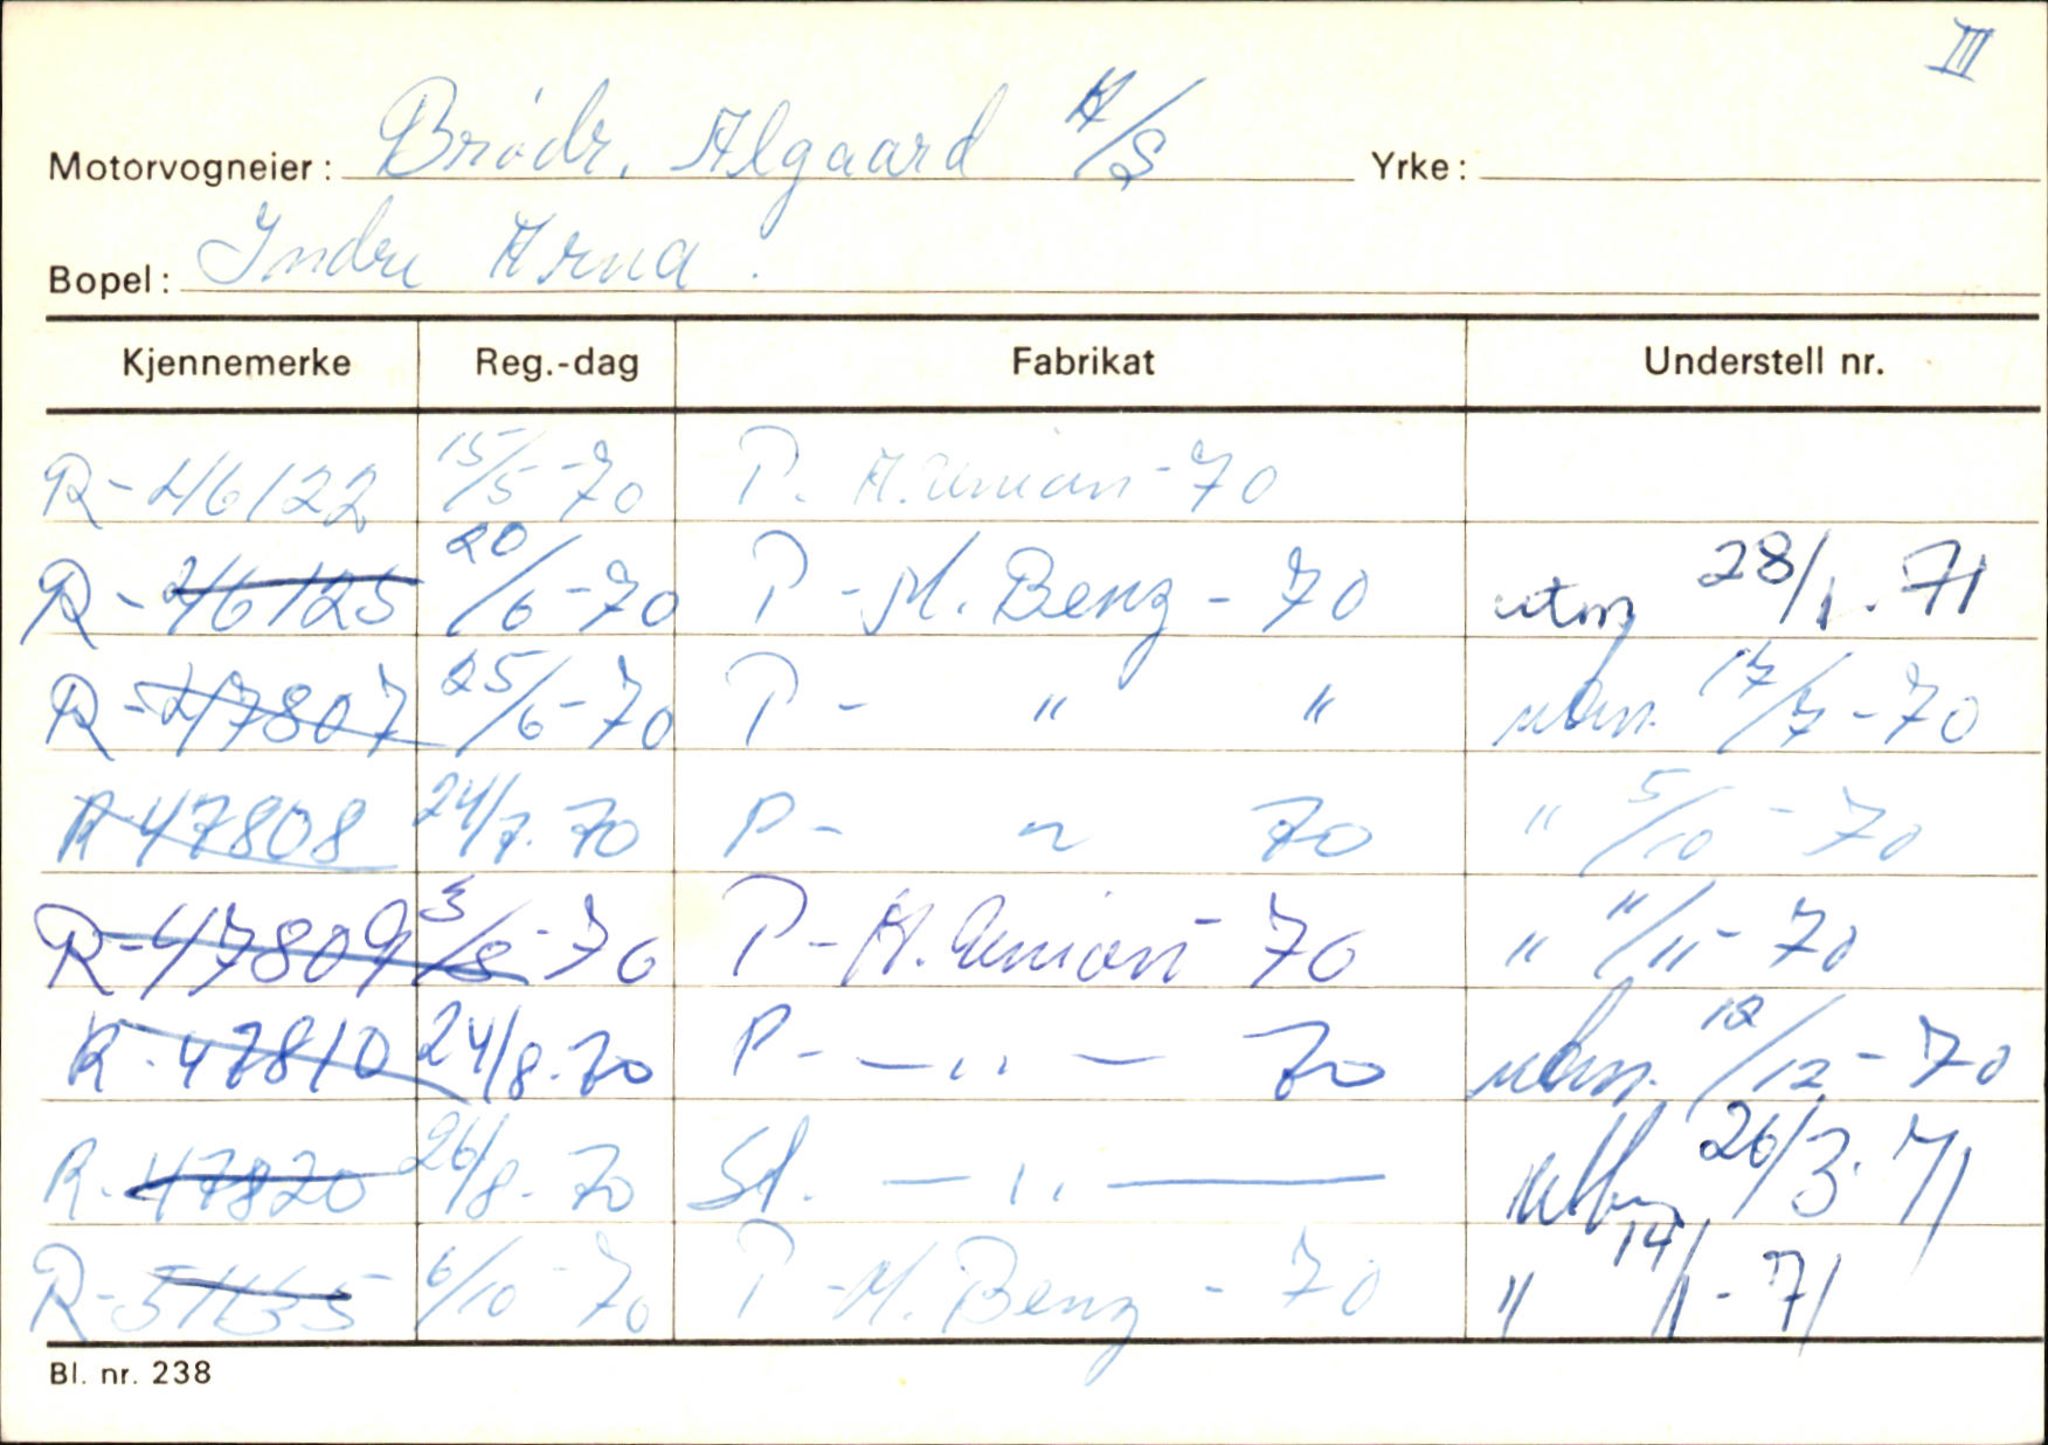 III
Motorvogneier: Brødr. Algaard A/S Yrke:
Bopel: Indre Arna.
Kjennemerke Reg.-dag Fabrikat Understell nr.
R-46122 15/5-70 P. A.Union-70
R-46125 20/6-70 P-M. Benz-70 28/1.71
R-47807 25/6-70 P- " " 17/7-70
R-47808 24/7.70 P- " 70 " 5/10-70
R-47809 3/8-70 P-A.Union-70 " "/11-70
R.47810 24/8.70 P- —"— 70 12/12-70
R.47820 26/8.70 St. —"— 26/3.71
R- 6/10-70 P-M.Benz-70 " 14/1-71
Bl. nr. 238